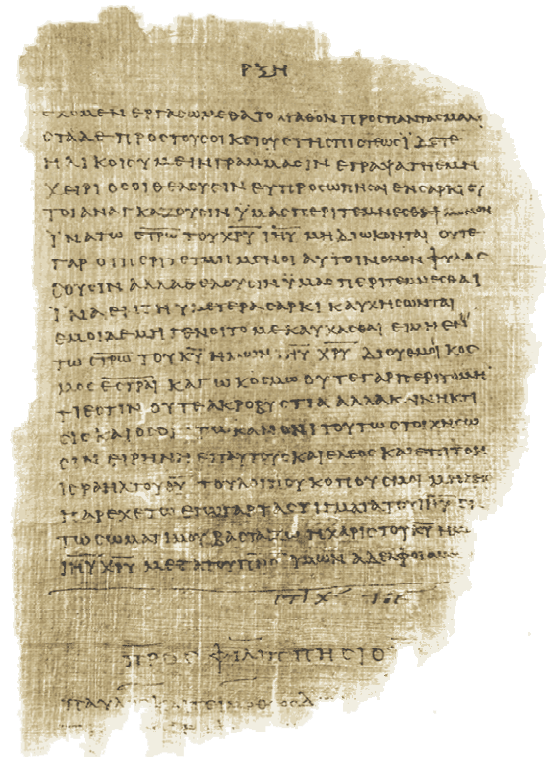 ΡϞΗ
ΕΧΟΜΕΝ ΕΡΓΑϹΩΜΕΘΑ ΤΟ ΑΓΑΘΟΝ ΠΡΟϹ ΠΑΝΤΑϹ ΜΑΛΙ
ϹΤΑ ΔΕ ΠΡΟϹ ΤΟΥϹ ΟΙΚΕΙΟΥϹ ΤΗϹ ΠΙϹΤΕΩϹ ΪΔΕΤΕ
ΗΛΙΚΟΙϹ ΥΜΕΙΝ ΓΡΑΜΜΑϹΙΝ ΕΓΡΑΨΑ ΤΗ ΕΜΗ
ΧΕΙΡΙ ΟϹΟΙ ΘΕΛΟΥϹΙΝ ΕΥΠΡΟϹΩΠΗϹΑΙ ΕΝ ϹΑΡΚΙ ΟΥ
ΤΟΙ ΑΝΑΓΚΑΖΟΥϹΙΝ ΫΜΑϹ ΠΕΡΙΤΕΜΝΕϹΘΑΙ ΜΟΝΟΝ
ΪΝΑ ΤΩ Ϲ̅Τ̅Ρ̅Ω̅ ΤΟΥ Χ̅Ρ̅Υ̅ Ι̅Η̅Υ̅ ΜΗ ΔΙΩΚΟΝΤΑΙ ΟΥΤΕ
ΓΑΡ ΟΙ ΠΕΡΙΤΕΤΜΗΜΕΝΟΙ ΑΥΤΟΙ ΝΟΜΟΝ ΦΥΛΑϹ
ϹΟΥϹΙΝ ΑΛΛΑ ΘΕΛΟΥϹΙΝ ΫΜΑϹ ΠΕΡΙΤΕΜΝΕϹΘΑΙ
ΪΝΑ ΕΝ ΤΗ ΥΜΕΤΕΡΑ ϹΑΡΚΙ ΚΑΥΧΗϹΩΝΤΑΙ
ΕΜΟΙ ΔΕ ΜΗ ΓΕΝΟΙΤΟ ΜΕ ΚΑΥΧΑϹΘΑΙ ΕΙ ΜΗ ΕΝ
ΤΩ Ϲ̅Τ̅Ρ̅Ω̅ ΤΟΥ Κ̅Υ̅ ΗΜΩΝ Ι̅Η̅Υ̅ Χ̅Ρ̅Υ̅ ΔΙ ΟΥ ΕΜΟΙ ΚΟϹ
ΜΟϹ Ε̅Ϲ̅Τ̅Ρ̅Α̅Ι̅ ΚΑΓΩ ΚΟϹΜΩ ΟΥΤΕ ΓΑΡ ΠΕΡΙΤΟΜΗ
ΤΙ ΕϹΤΙΝ ΟΥΤΕ ΑΚΡΟΒΥϹΤΙΑ ΑΛΛΑ ΚΑΙΝΗ ΚΤΙ
ϹΙϹ ΚΑΙ ΟϹΟΙ ΤΩ ΚΑΝΟΝΙ ΤΟΥΤΩ ϹΤΟΙΧΗϹΩ
ϹΙΝ ΕΙΡΗΝΗ ΕΠ ΑΥΤΟΥϹ ΚΑΙ ΕΛΕΟϹ ΚΑΙ ΕΠΙ ΤΟΝ
ΙϹΡΑΗΛ ΤΟΥ Θ̅Υ̅ ΤΟΥ ΛΟΙΠΟΥ ΚΟΠΟΥϹ ΜΟΙ ΜΗΔΕΙϹ
ΠΑΡΕΧΕΤΩ ΕΓΩ ΓΑΡ ΤΑ ϹΤΙΓΜΑΤΑ ΤΟΥ Ι̅Η̅Υ̅ ΕΝ
ΤΩ ϹΩΜΑΤΙ ΜΟΥ ΒΑϹΤΑΖΩ Η ΧΑΡΙϹ ΤΟΥ Κ̅Υ̅ ΗΜΩ
Ι̅Η̅Υ̅ Χ̅Ρ̅Υ̅ ΜΕΤΑ ΤΟΥ Π̅Ν̅Ϲ̅ ΥΜΩΝ ΑΔΕΛΦΟΙ ΑΜΗΝ
ϹΤΙΧ ΤΟΕ
ΠΡΟϹ ΦΙΛΙΠΠΗϹΙΟ
ΠΑΥΛΟϹ ΚΑΙ ΤΕΙΜΟΘΕΟϹ